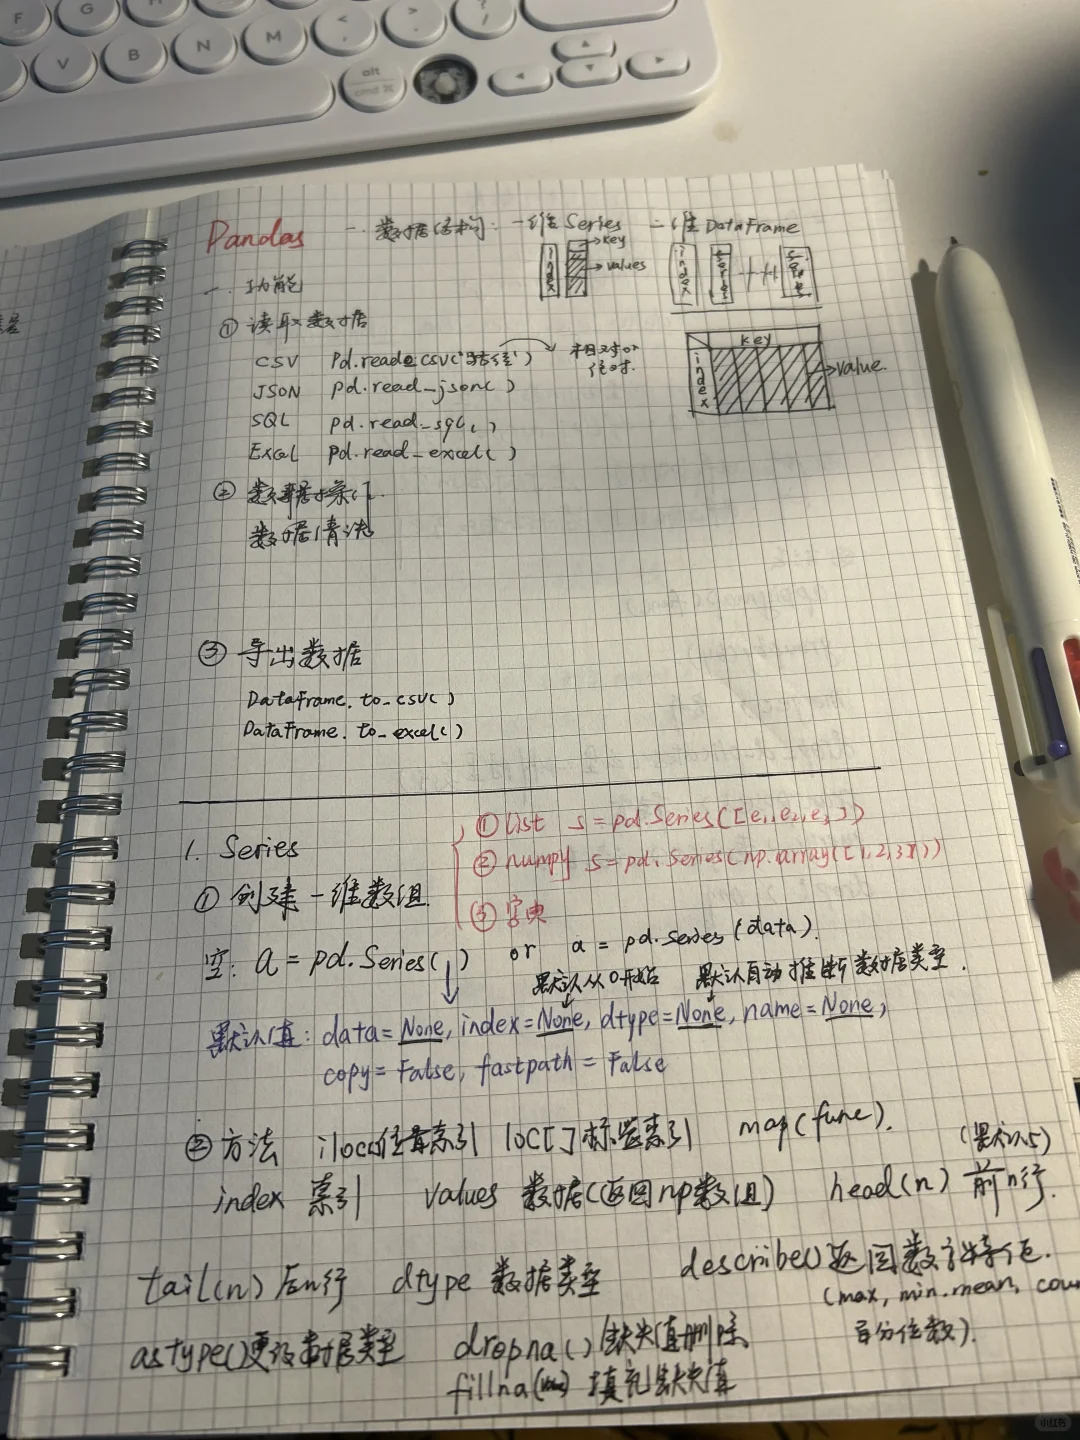 F G H
V B N M < > ?
alt
cmd ⌘
Pandas 一. 数据结构: 一维 Series 二维 DataFrame
index key
values
index
一. 功能
① 读取数据
CSV pd.read_csv('路径') 相对or
绝对.
JSON pd.read_json()
SQL pd.read_sql()
Excel pd.read_excel()
key
index
value.
②
数据清洗
③ 导出数据
DataFrame.to_csv()
DataFrame.to_excel()
1. Series
① 创建一维数组
① list s = pd.Series([e1,e2,e3])
② numpy s = pd.Series(np.array([1,2,3]))
③ 字典
空: a = pd.Series() or a = pd.Series(data).
默认从0开始 默认自动推断数据类型.
默认值: data=None, index=None, dtype=None, name=None,
copy=False, fastpath=False
② 方法 iloc[]位置索引 loc[]标签索引 map(func).
index 索引 values 数据(返回np数组) head(n) 前n行. (默认5)
tail(n) 后n行 dtype 数据类型 describe() 返回数字特征.
(max, min. mean, cou
百分位数).
astype()更改数据类型 dropna() 缺失值删除
fillna() 填充缺失值
小红书